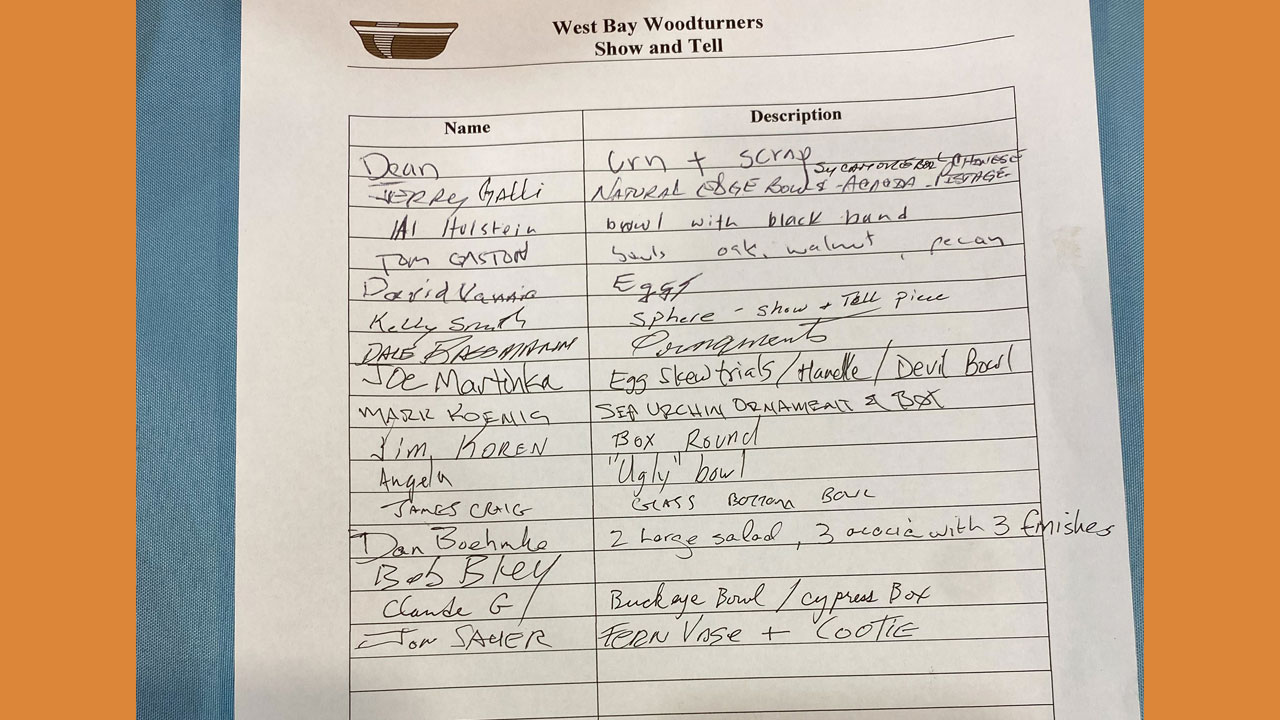 West Bay Woodturners
Show and Tell
Name Description
Dean Urn + scrap
JERRY GALLI NATURAL EDGE BOWLS - SYCAMORE BOWL, CHINESE PISTAGE
Al Hulstein bowl with black band
TOM GASTON bowls oak, walnut, pecan
David Eggs
Kelly Smith Sphere - show + Tell piece
DALE BASSMANN Ornaments
JOE Martinka Egg Skew trials / Handle / Devil Bowl
MARK KOENIG SEA URCHIN ORNAMENT & BOX
Jim KOREN BOX Round
Angela "Ugly" bowl
JAMES CRAIG GLASS BOTTOM BOWL
Dan Boehmke 2 Large salad, 3 acacia with 3 finishes
Bob Bley
Claude G Buckeye Bowl / cypress Box
Jon SAUER FERN VASE + COOTIE